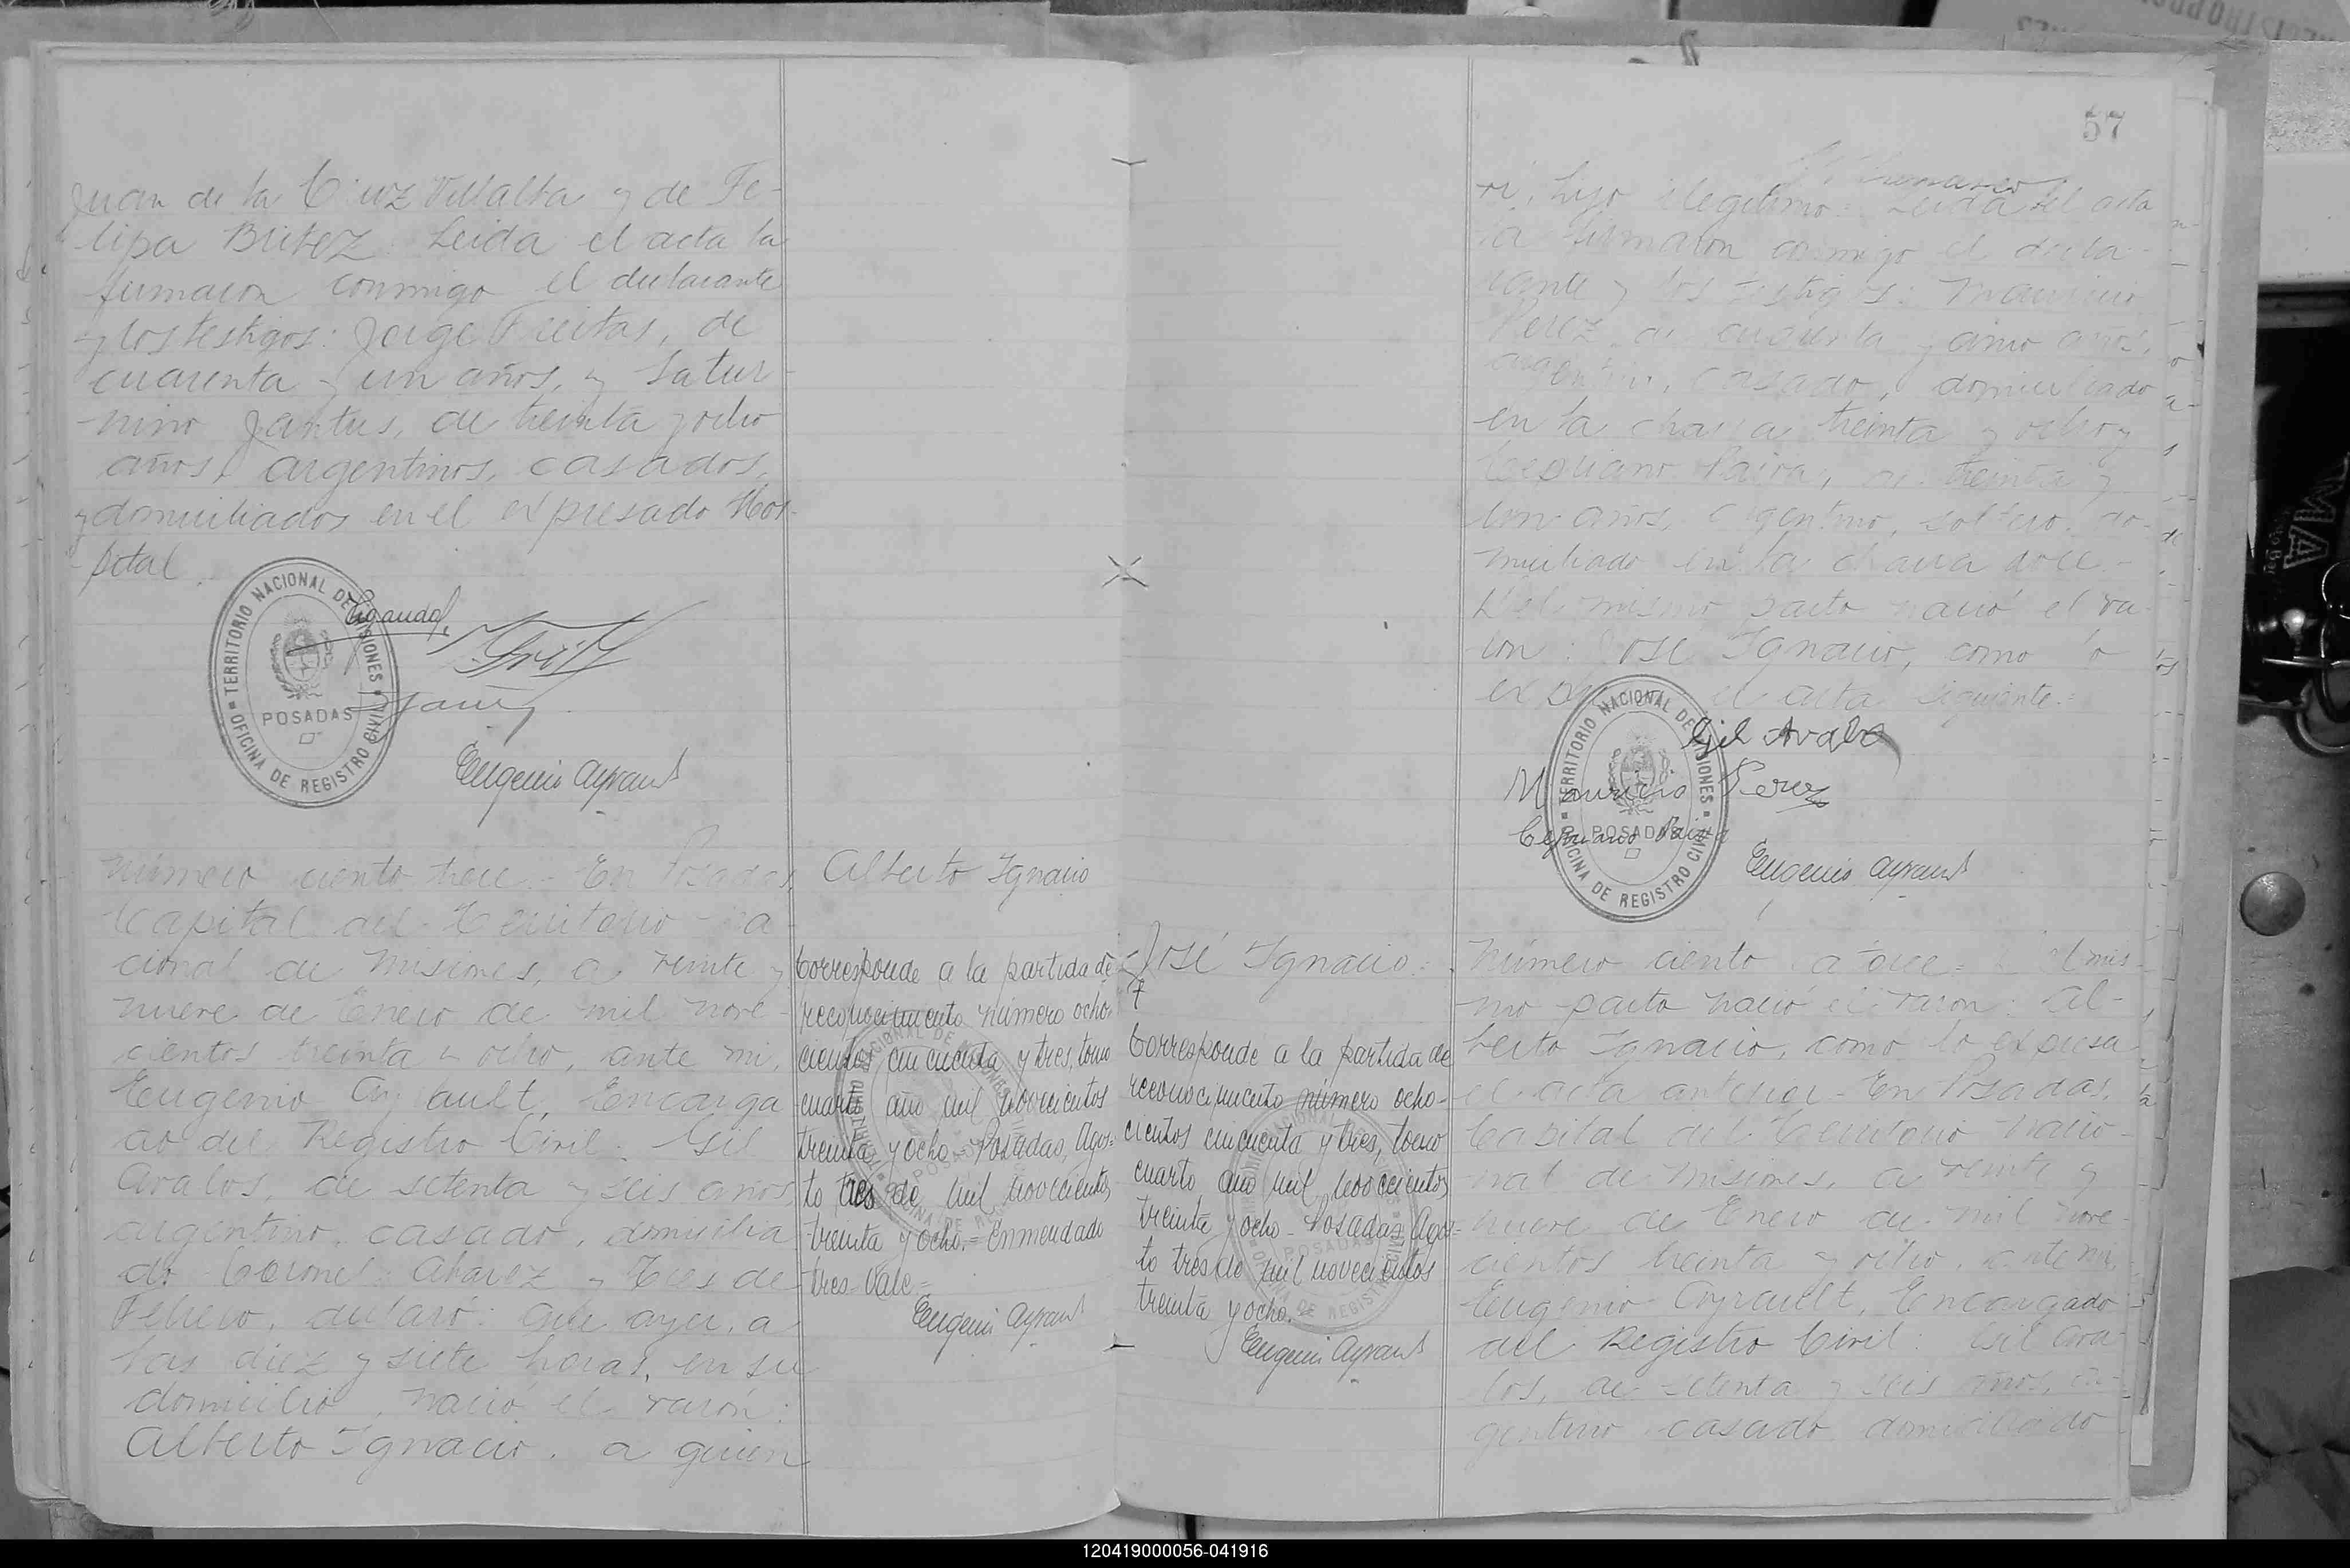 Juan de la Cruz Villalba y de Fe-
lipa Britez. Leida el acta la
firmaron conmigo el declarante
y los testigos: Jorge Freitas, de
cuarenta y un años, y Satur-
nino Jantus, de treinta y ocho
años, argentinos, casados,
y domiciliados en el expresado Hos-
pital.
TERRITORIO NACIONAL DE MISIONES
POSADAS
OFICINA DE REGISTRO CIVIL
Eugenio Ayrault
Número ciento trece.- En Posadas,
Capital del Territorio Na-
cional de Misiones, a veinte y
nueve de Enero de mil nove-
cientos treinta y ocho, ante mi,
Eugenio Ayrault, Encarga
do del Registro Civil: Gil
Avalos, de setenta y seis años,
argentino, casado, domicilia
do Coronel Alvarez y Tres de
Febrero, declaró: que ayer, a
las diez y siete horas, en su
domicilio, nació el varón:
Alberto Ignacio, a quien
Alberto Ignacio
Corresponde a la partida de
reconocimiento número ocho-
cientos cincuenta y tres, tomo
cuarto año mil novecientos
treinta y ocho. Posadas, Agos-
to tres de mil novecientos
treinta y ocho.= Enmendado
tres. Vale=
Eugenio Ayrault
57
ri, hijo ilegitimo. Leida el acta
la firmaron conmigo el decla-
rante y los testigos: Mauricio
Perez, de cuarenta y cinco años,
argentino, casado, domiciliado
en la chacra treinta y ocho y
Cepriano Paiva, de treinta y
un años, argentino, soltero, do-
miciliado en la chacra doce.-
Del mismo parto nació el va-
ron: José Ignacio, como lo
expresa el acta siguiente.=
Gil Avalo
Mauricio Perez
Cepriano Paiva
TERRITORIO NACIONAL DE MISIONES
POSADAS
OFICINA DE REGISTRO CIVIL
Eugenio Ayrault
José Ignacio.
Corresponde a la partida de
reconocimiento número ocho-
cientos cincuenta y tres, tomo
cuarto año mil novecientos
treinta y ocho. Posadas, Agos-
to tres de mil novecientos
treinta y ocho.
Eugenio Ayrault
Número ciento catorce= Del mis-
mo parto nació el varon: Al-
berto Ignacio, como lo expresa
el acta anterior.- En Posadas,
Capital del Territorio Nacio-
nal de Misiones, a veinte y
nueve de Enero de mil nove-
cientos treinta y ocho, ante mi,
Eugenio Ayrault, Encargado
del Registro Civil: Gil Ava-
los, de setenta y seis años, ar-
gentino casado domiciliado
120419000056-041916